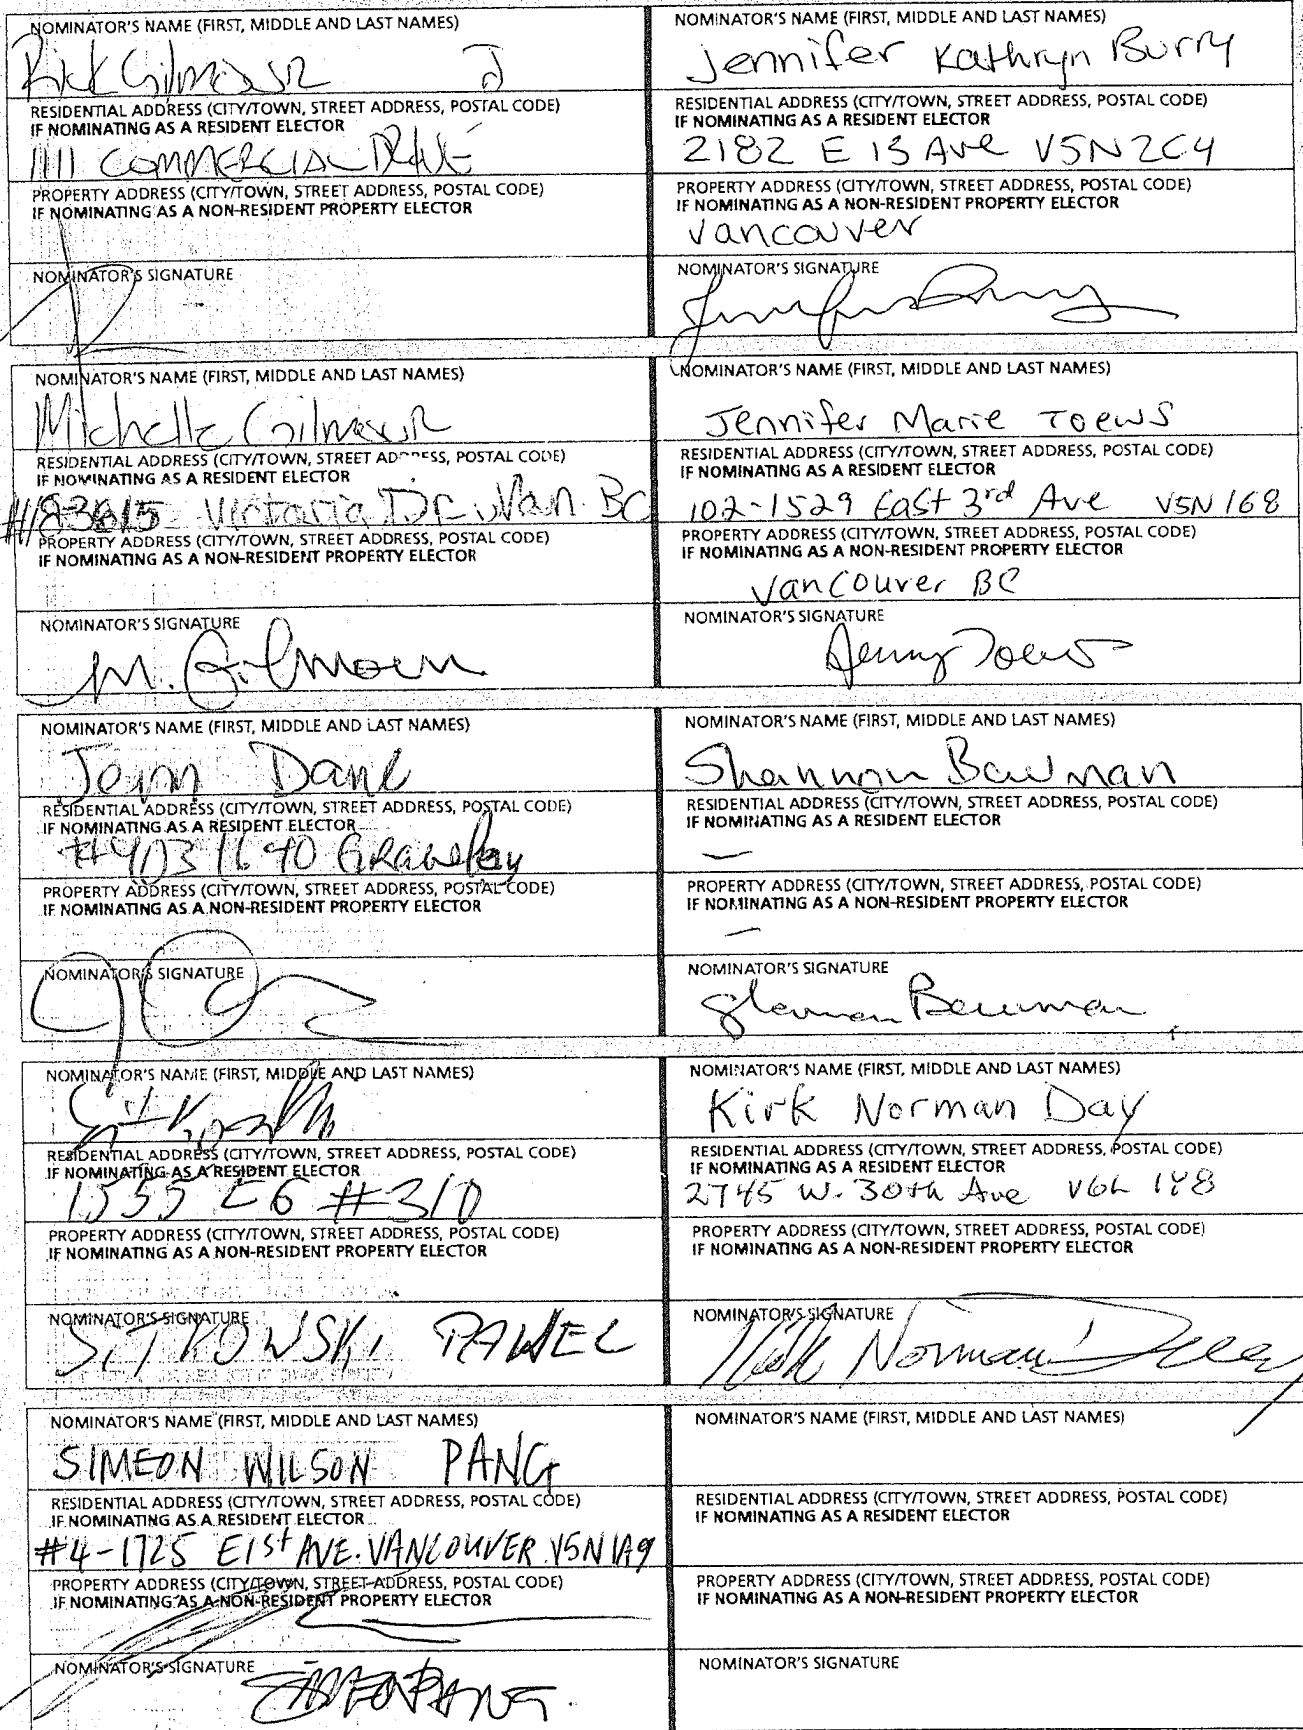 NOMINATOR'S NAME (FIRST, MIDDLE AND LAST NAMES)
Rick Gilmour J
RESIDENTIAL ADDRESS (CITY/TOWN, STREET ADDRESS, POSTAL CODE)
IF NOMINATING AS A RESIDENT ELECTOR
1111 COMMERCIAL DRIVE
PROPERTY ADDRESS (CITY/TOWN, STREET ADDRESS, POSTAL CODE)
IF NOMINATING AS A NON-RESIDENT PROPERTY ELECTOR
NOMINATOR'S SIGNATURE
NOMINATOR'S NAME (FIRST, MIDDLE AND LAST NAMES)
Jennifer Kathryn Burry
RESIDENTIAL ADDRESS (CITY/TOWN, STREET ADDRESS, POSTAL CODE)
IF NOMINATING AS A RESIDENT ELECTOR
2182 E 13 Ave V5N 2C4
PROPERTY ADDRESS (CITY/TOWN, STREET ADDRESS, POSTAL CODE)
IF NOMINATING AS A NON-RESIDENT PROPERTY ELECTOR
Vancouver
NOMINATOR'S SIGNATURE
NOMINATOR'S NAME (FIRST, MIDDLE AND LAST NAMES)
Michelle Gilmour
RESIDENTIAL ADDRESS (CITY/TOWN, STREET ADDRESS, POSTAL CODE)
IF NOMINATING AS A RESIDENT ELECTOR
Victoria Dr. Van. BC
PROPERTY ADDRESS (CITY/TOWN, STREET ADDRESS, POSTAL CODE)
IF NOMINATING AS A NON-RESIDENT PROPERTY ELECTOR
NOMINATOR'S SIGNATURE
M. Gilmour
NOMINATOR'S NAME (FIRST, MIDDLE AND LAST NAMES)
Jennifer Marie Toews
RESIDENTIAL ADDRESS (CITY/TOWN, STREET ADDRESS, POSTAL CODE)
IF NOMINATING AS A RESIDENT ELECTOR
102-1529 East 3rd Ave V5N 1G8
PROPERTY ADDRESS (CITY/TOWN, STREET ADDRESS, POSTAL CODE)
IF NOMINATING AS A NON-RESIDENT PROPERTY ELECTOR
Vancouver BC
NOMINATOR'S SIGNATURE
Jenny Toews
NOMINATOR'S NAME (FIRST, MIDDLE AND LAST NAMES)
Jenn Dane
RESIDENTIAL ADDRESS (CITY/TOWN, STREET ADDRESS, POSTAL CODE)
IF NOMINATING AS A RESIDENT ELECTOR
#403 1640 Graveley
PROPERTY ADDRESS (CITY/TOWN, STREET ADDRESS, POSTAL CODE)
IF NOMINATING AS A NON-RESIDENT PROPERTY ELECTOR
NOMINATOR'S SIGNATURE
NOMINATOR'S NAME (FIRST, MIDDLE AND LAST NAMES)
Shannon Bowman
RESIDENTIAL ADDRESS (CITY/TOWN, STREET ADDRESS, POSTAL CODE)
IF NOMINATING AS A RESIDENT ELECTOR
—
PROPERTY ADDRESS (CITY/TOWN, STREET ADDRESS, POSTAL CODE)
IF NOMINATING AS A NON-RESIDENT PROPERTY ELECTOR
—
NOMINATOR'S SIGNATURE
Shannon Bowman
NOMINATOR'S NAME (FIRST, MIDDLE AND LAST NAMES)
RESIDENTIAL ADDRESS (CITY/TOWN, STREET ADDRESS, POSTAL CODE)
IF NOMINATING AS A RESIDENT ELECTOR
1555 E6 #310
PROPERTY ADDRESS (CITY/TOWN, STREET ADDRESS, POSTAL CODE)
IF NOMINATING AS A NON-RESIDENT PROPERTY ELECTOR
NOMINATOR'S SIGNATURE
SITKOWSKI PAWEL
NOMINATOR'S NAME (FIRST, MIDDLE AND LAST NAMES)
Kirk Norman Day
RESIDENTIAL ADDRESS (CITY/TOWN, STREET ADDRESS, POSTAL CODE)
IF NOMINATING AS A RESIDENT ELECTOR
2745 W. 30th Ave V6L 1Y8
PROPERTY ADDRESS (CITY/TOWN, STREET ADDRESS, POSTAL CODE)
IF NOMINATING AS A NON-RESIDENT PROPERTY ELECTOR
NOMINATOR'S SIGNATURE
Kirk Norman Day
NOMINATOR'S NAME (FIRST, MIDDLE AND LAST NAMES)
SIMEON WILSON PANG
RESIDENTIAL ADDRESS (CITY/TOWN, STREET ADDRESS, POSTAL CODE)
IF NOMINATING AS A RESIDENT ELECTOR
#4-1725 E 1st AVE. VANCOUVER V5N 1A9
PROPERTY ADDRESS (CITY/TOWN, STREET ADDRESS, POSTAL CODE)
IF NOMINATING AS A NON-RESIDENT PROPERTY ELECTOR
NOMINATOR'S SIGNATURE
SIMEON PANG.
NOMINATOR'S NAME (FIRST, MIDDLE AND LAST NAMES)
RESIDENTIAL ADDRESS (CITY/TOWN, STREET ADDRESS, POSTAL CODE)
IF NOMINATING AS A RESIDENT ELECTOR
PROPERTY ADDRESS (CITY/TOWN, STREET ADDRESS, POSTAL CODE)
IF NOMINATING AS A NON-RESIDENT PROPERTY ELECTOR
NOMINATOR'S SIGNATURE